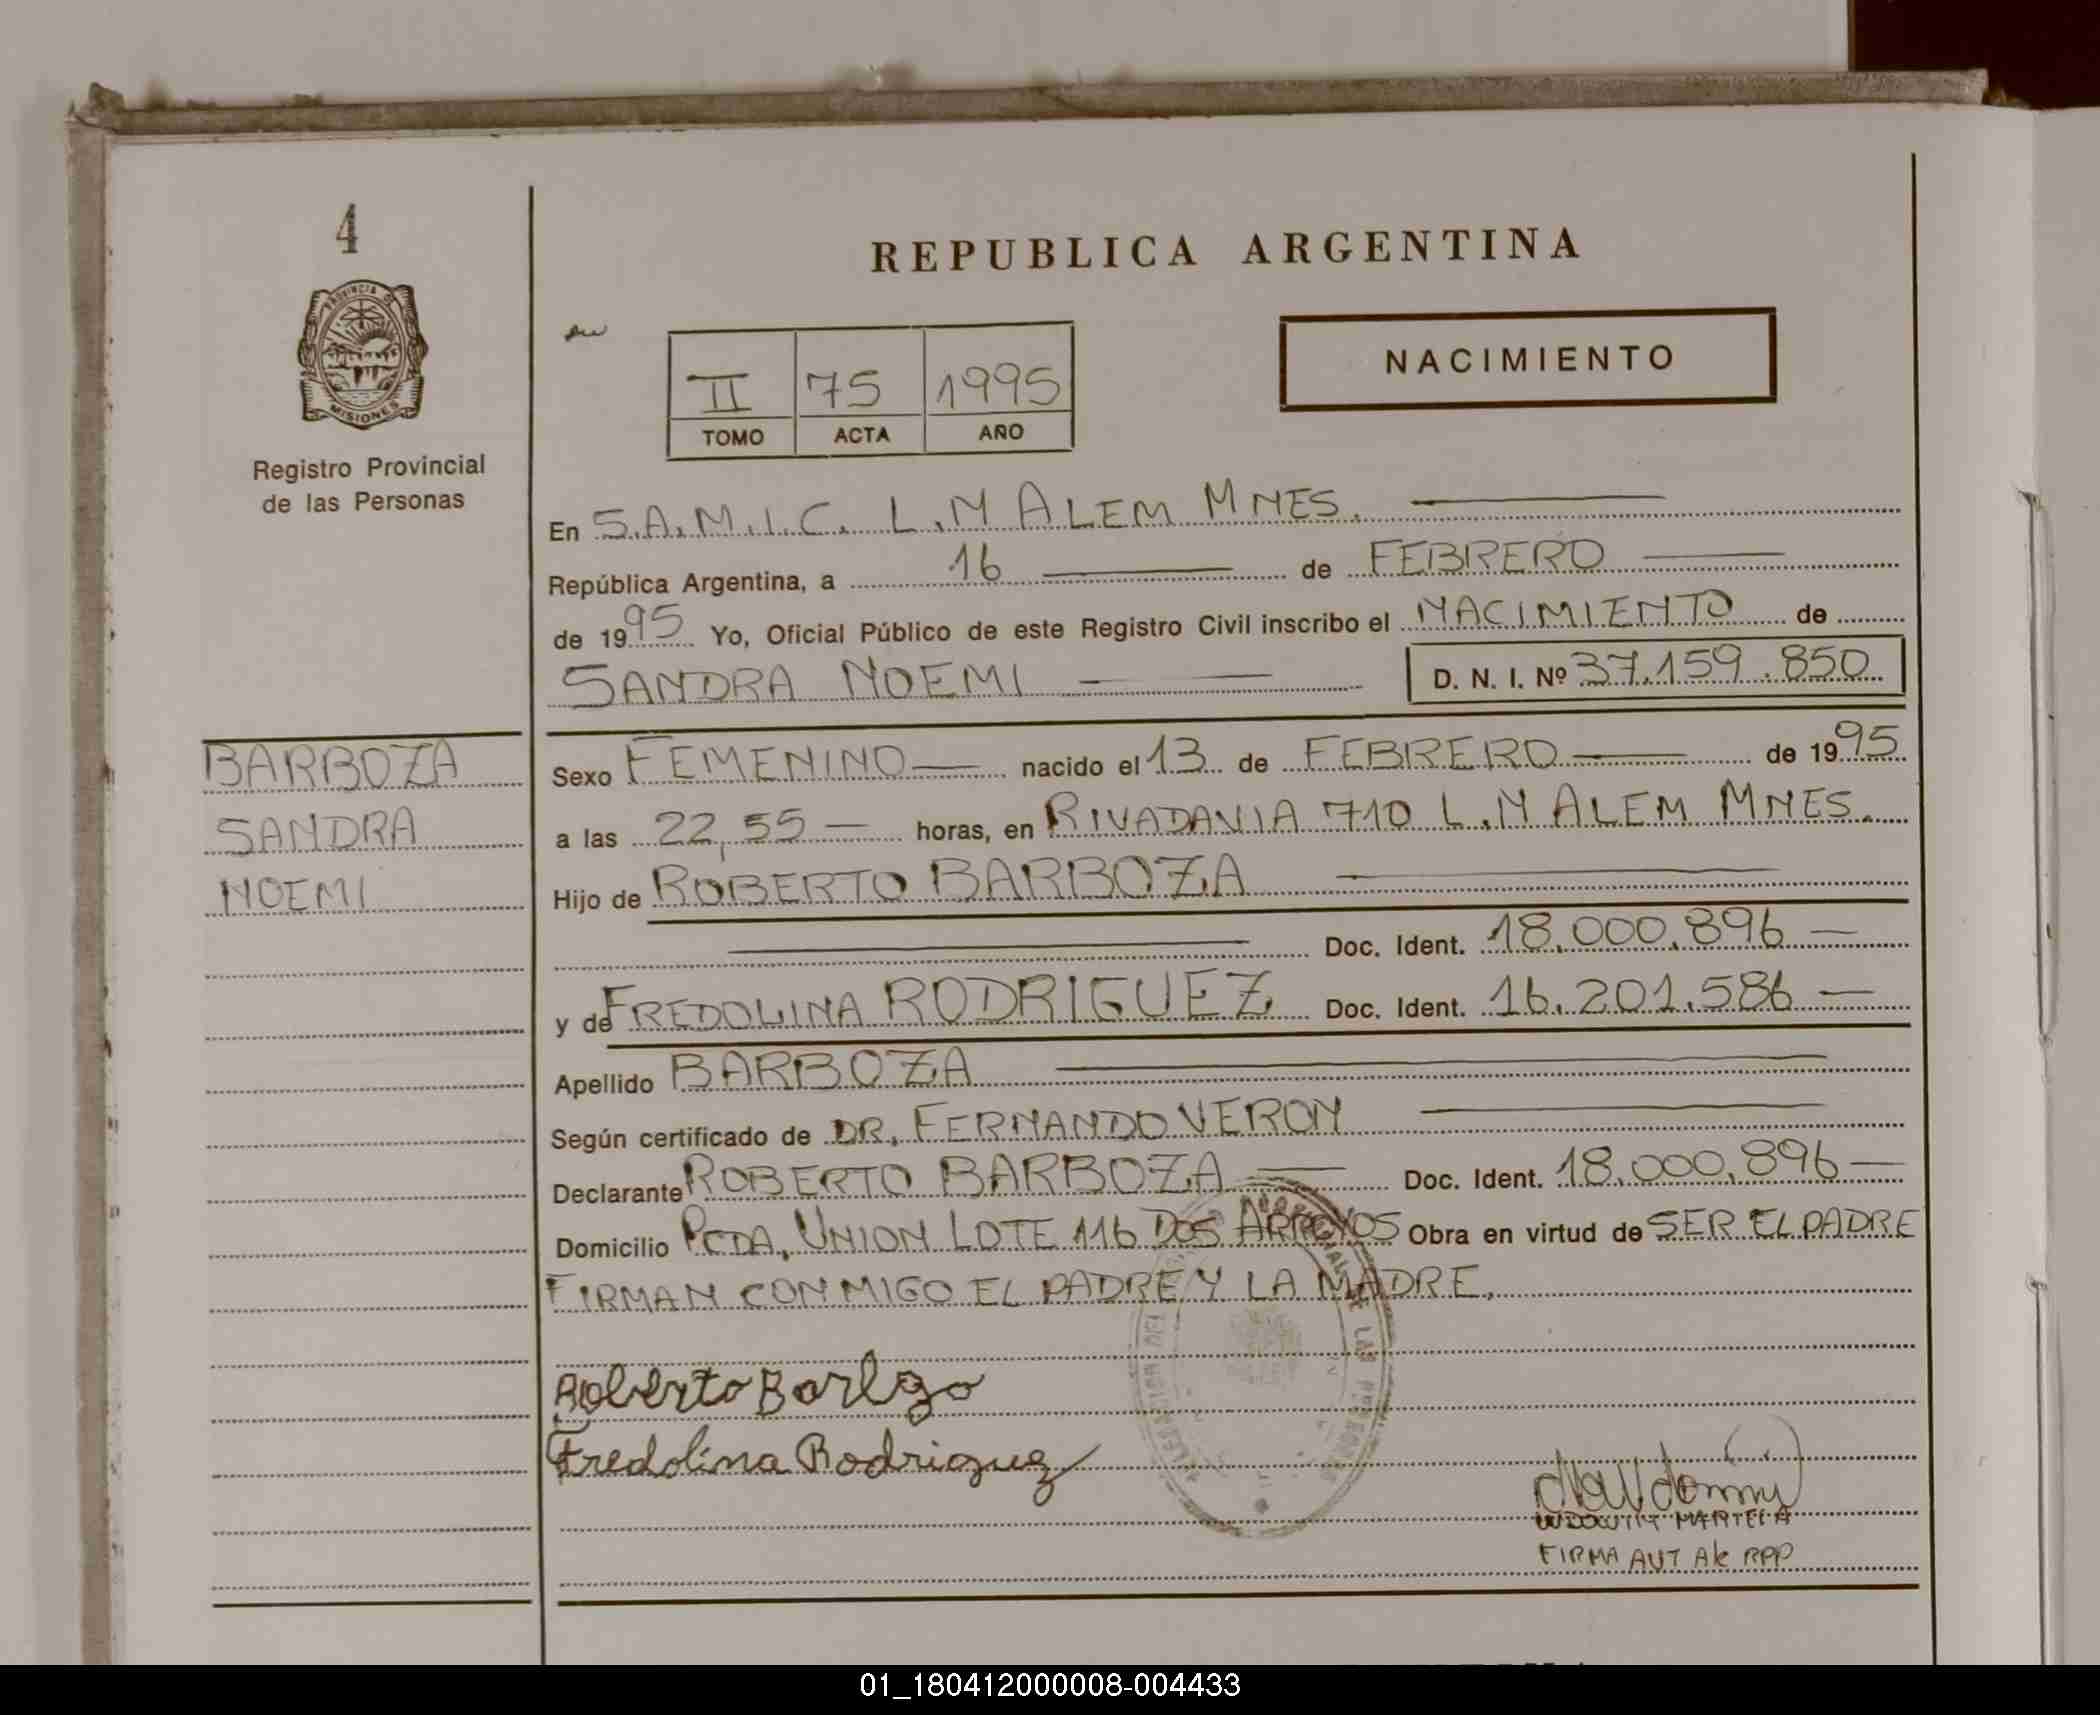 4
REPUBLICA ARGENTINA
PROVINCIA DE
MISIONES
II 75 1995
TOMO ACTA AÑO
NACIMIENTO
Registro Provincial
de las Personas
En S.A.M.I.C. L.N ALEM MNES.
República Argentina, a 16 de FEBRERO
de 1995 Yo, Oficial Público de este Registro Civil inscribo el NACIMIENTO de
SANDRA NOEMI D. N. I. Nº 37.159.850
BARBOZA
SANDRA
NOEMI
Sexo FEMENINO nacido el 13 de FEBRERO de 1995
a las 22,55 horas, en RIVADAVIA 710 L.N ALEM MNES.
Hijo de ROBERTO BARBOZA
Doc. Ident. 18.000.896
y de FREDOLINA RODRIGUEZ Doc. Ident. 16.201.586
Apellido BARBOZA
Según certificado de DR. FERNANDO VERON
Declarante ROBERTO BARBOZA Doc. Ident. 18.000.896
Domicilio PCDA. UNION LOTE 116 DOS ARROYOS Obra en virtud de SER EL PADRE
FIRMAN CON MIGO EL PADRE Y LA MADRE.
Roberto Barboza
Fredolina Rodriguez
FIRMA AUT
01_180412000008-004433